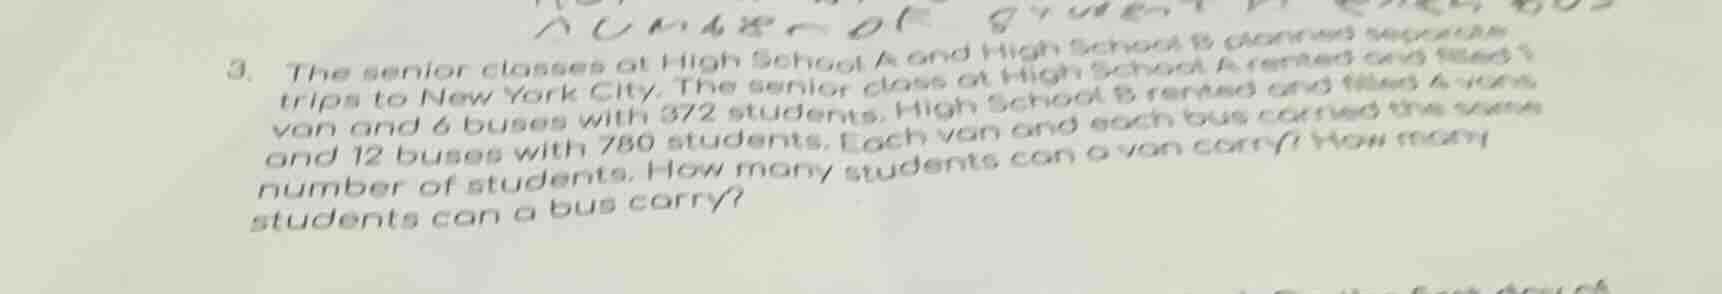 number of student in each bus
3. The senior classes at High School A and High School B planned separate
trips to New York City. The senior class at High School A rented and filled 1
van and 6 buses with 372 students. High School B rented and filled 4 vans
and 12 buses with 780 students. Each van and each bus carried the same
number of students. How many students can a van carry? How many
students can a bus carry?